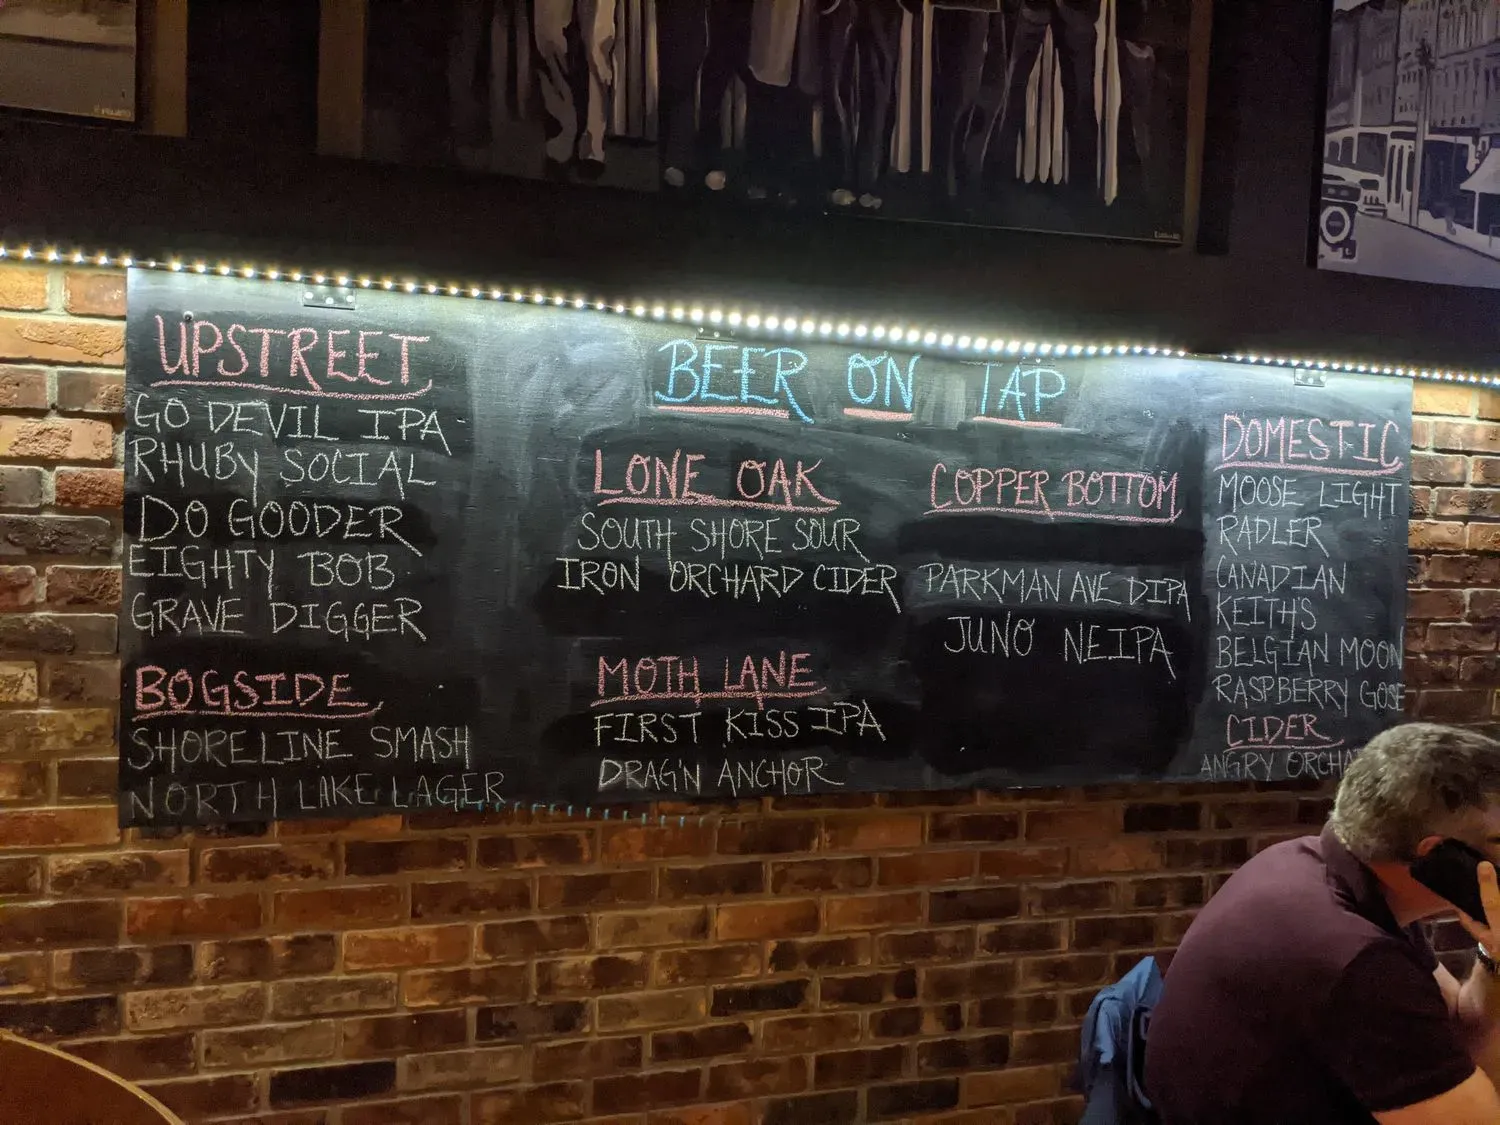 BEER ON TAP
UPSTREET
GO DEVIL IPA
RHUBY SOCIAL
DO GOODER
EIGHTY BOB
GRAVE DIGGER
BOGSIDE
SHORELINE SMASH
NORTH LAKE LAGER
LONE OAK
SOUTH SHORE SOUR
IRON ORCHARD CIDER
MOTH LANE
FIRST KISS IPA
DRAG'N ANCHOR
COPPER BOTTOM
PARKMAN AVE DIPA
JUNO NEIPA
DOMESTIC
MOOSE LIGHT
RADLER
CANADIAN
KEITH'S
BELGIAN MOON
RASPBERRY GOSE
CIDER
ANGRY ORCHA